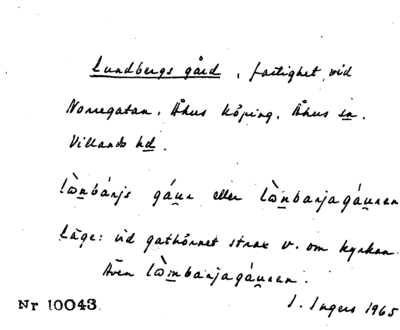 Lundbergs gård, fastighet vid
Norregatan, Åhus köping, Åhus sn.
Villands hd.
lònbánjs gáu̯r eller lòmbanjagáu̯ren
Läge: vid gathörnet strax v. om kyrkan.
Även lòmbanjagáu̯ren.
Nr 10043.
I. Ingers 1965